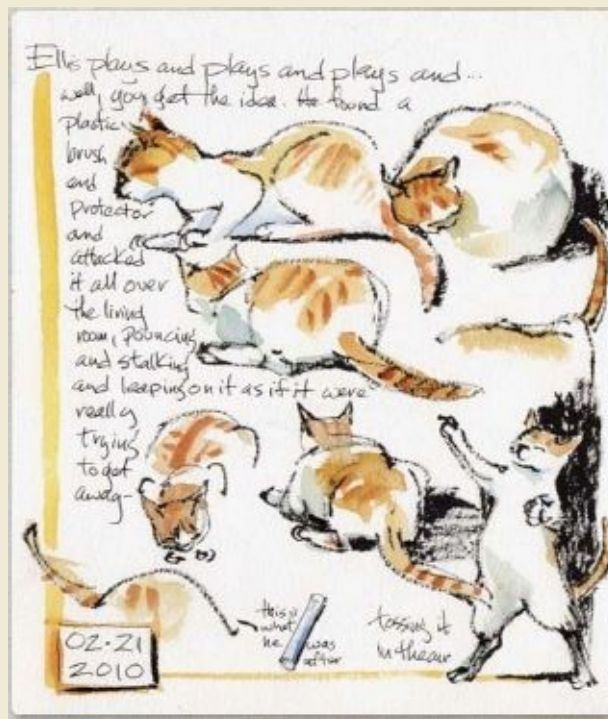 Ellis plays and plays and plays and...
well, you get the idea. He found a
plastic
brush
end
protector
and
attacked
it all over
the living
room, pouncing
and stalking
and leaping on it as if it were
really
trying
to get
away-
this is
what
he was
after
tossing it
in the air
02·21
2010